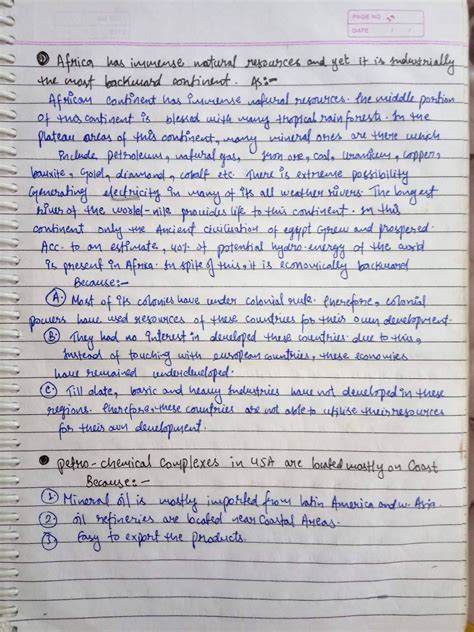 PAGE NO.
DATE
Africa has immense natural resources and yet it is industrially
the most backward continent. As:-
African continent has immense natural resources. The middle portion
of this continent is blessed with many tropical rainforests. In the
plateau areas of this continent, many mineral ores are there which
include petroleum, natural gas, Iron ore, coal, Uranium, copper,
bauxite, Gold, diamond, cobalt etc. There is extreme possibility
Generating electricity in many of its all weather rivers. The longest
river of the world-nile provides life to this continent. In this
continent only the Ancient civilization of egypt Grew and prospered.
Acc. to an estimate, 40% of potential hydro-energy of the world
is present in Africa. In spite of this, it is economically backward
Because:-
A. Most of its colonies have under colonial rule. Therefore, colonial
powers have used resources of these countries for their own development.
B. They had no interest in developed these countries due to this,
Instead of touching with european countries, these economies
have remained underdeveloped.
C. Till date, basic and heavy Industries have not developed in these
regions. Therefore, these countries are not able to utilise their resources
for their own development.
Petro-chemical Complexes in USA are located mostly on Coast
Because:-
1. Mineral oil is mostly imported from Latin America and w. Asia.
2 oil refineries are located near Coastal Areas.
3. Easy to export the products.